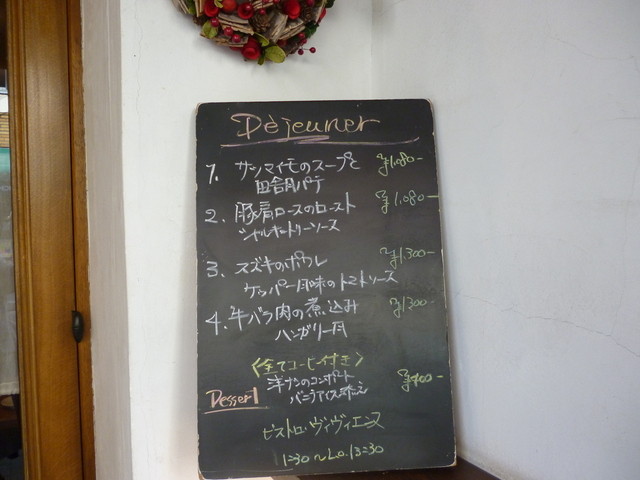 Déjeuner
1. サツマイモのスープと ¥1.080-
田舎風パテ
2. 豚肩ロースのロースト ¥1.080-
シャルキュトリーソース
3. スズキのポワレ ¥1.300-
ケッパー風味のトマトソース
4. 牛バラ肉の煮込み ¥1300-
ハンガリー風
〈全てコーヒー付き〉
洋ナシのコンポート
Dessert バニラアイス添え
ビストロ・ヴィヴィエンヌ
11:30～L.o.13:30